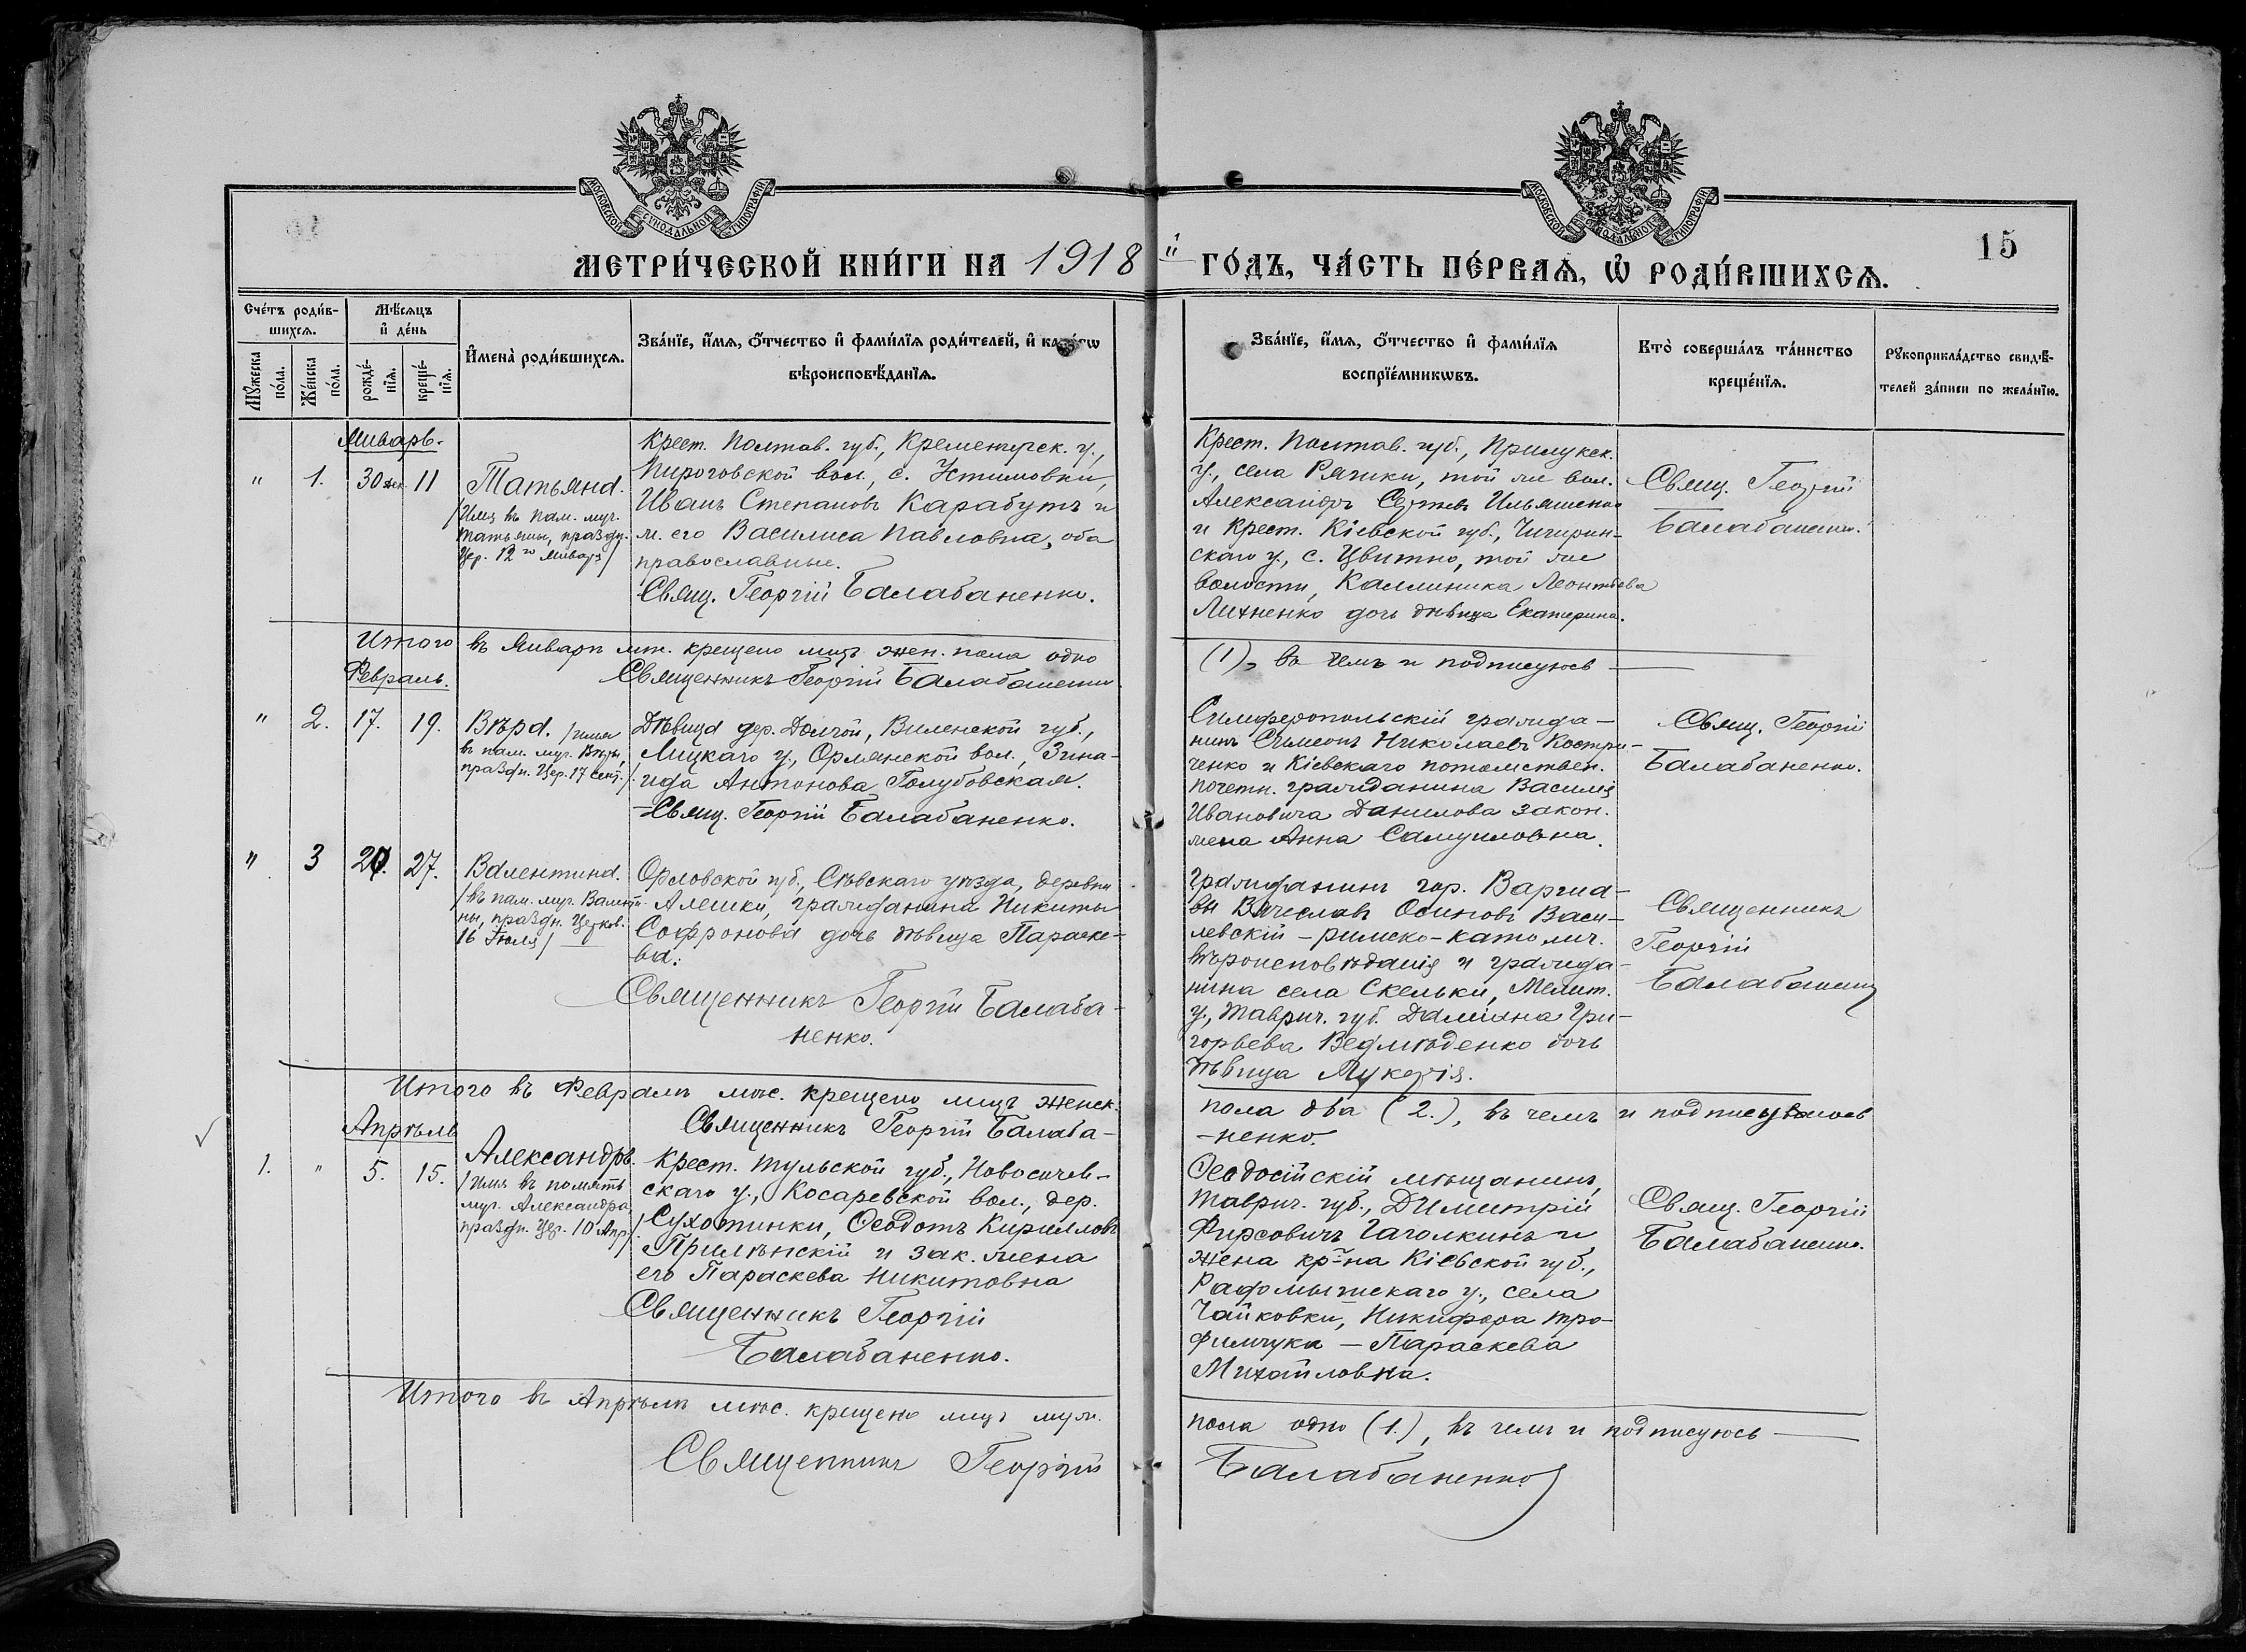 МОСКОВСКОЙ СѴНОДАЛЬНОЙ ТИПОГРАФІИ
МОСКОВСКОЙ СѴНОДАЛЬНОЙ ТИПОГРАФІИ
15
МЕТРИ́ЧЕСКОЙ КНИ́ГИ НА 1918 й ГО́ДЪ, ЧА́СТЬ ПЕ́РВАѦ, Ѡ҆ РОДИ́ВШИХСѦ.
Сче́тъ роди́в-
шихсѧ.
Мꙋ́жеска по́ла.
Же́нска по́ла.
Мѣ́сѧцъ
и҆ де́нь
рожде́-нїѧ.
креще́-нїѧ.
И҆мена̀ роди́вшихсѧ.
Зва́нїе, и҆́мѧ, ѻ҆́тчество и҆ фами́лїѧ роди́телей, и҆
вѣроисповѣ́данїѧ.
Зва́нїе, и҆́мѧ, ѻ҆́тчество и҆ фами́лїѧ
воспрїе́мникѡвъ.
Кто̀ соверша́лъ та́инство
креще́нїѧ.
Рꙋкоприкла́дство свидѣ́-
телей за́писи по жела́нїю.
Январь.
" 1. 30 дек. 11
Татьяна.
/Имя въ пам. муч.
Татьяны, праздн.
Цер. 12го Января/
Крест. Полтав. губ., Кременчугск. у.,
Пироговской вол., с. Устимовки,
Иванъ Степановъ Карабутъ и
ж. его Василиса Павловна, оба
православные.
Свящ. Георгій Балабаненко.
Крест. Полтав. губ., Прилукск.
у., села Ряшки, той же вол.
Александръ Сергѣевъ Ильяшенко
и крест. Кіевской губ., Чигирин-
скаго у., с. Цвитно, той же
волости, Каллиника Леонтьева
Лихненко дочь дѣвица Екатерина.
Свящ. Георгій
Балабаненко.
Итого въ Январѣ мѣс. крещено лицъ жен. пола одно
(1), въ чемъ и подписуюсь
Священникъ Георгій Балабаненко
Февраль.
" 2. 17. 19.
Вѣра. /имя
въ пам. муч. Вѣры,
праздн. Цер. 17 Сент./
Дѣвица дер. Долгой, Виленской губ.,
Лидскаго у., Орлянской вол., Зина-
ида Антонова Голубовская.
Свящ. Георгій Балабаненко.
Симферопольскій гражда-
нинъ Симеонъ Николаевъ Костри-
ченко и Кіевскаго потомствен.
почетн. гражданина Василія
Ивановича Данилова закон.
жена Анна Самуиловна.
Свящ. Георгій
Балабаненко.
" 3 27.
Валентина.
/въ пам. муч. Валенти-
ны, праздн. Церков.
16 Іюля/
Орловской губ., Сѣвскаго уѣзда, деревни
Алешки, гражданина Никиты
Софронова дочь дѣвица Параске-
ва.
Священникъ Георгій Балаба-
ненко.
Гражданинъ гор. Варша-
вы Вячеславъ Осиповъ Васи-
левскій - римско-католич.
вѣроисповѣданія и гражда-
нина села Скельки, Мелит.
у., Таврич. губ. Даміана Гри-
горьева Ведмѣденко дочь
дѣвица Лукерія.
Священникъ
Георгій
Балабаненко
Итого въ Февралѣ мѣс. крещено лицъ женск.
пола два (2.), въ чемъ и подписываюсь
Священникъ Георгій Балаба-
-ненко.
Апрѣль
1. " 5. 15.
Александръ.
/Имя въ память
муч. Александра,
праздн. Цер. 10 Апр./
Крест. Тульской губ., Новосильев-
скаго у., Косаревской вол., дер.
Сухотинки, Ѳеодотъ Кирилловъ
Прилѣпскій и зак. жена
его Параскева Никитовна
Священникъ Георгій
Балабаненко.
Ѳеодосійскій мѣщанинъ,
Таврич. губ., Димитрій
Фирсовичъ Гаголкинъ и
жена кр-на Кіевской губ.,
Радомышскаго у., села
Чайковки, Никифора Тро-
фимчука - Параскева
Михайловна.
Свящ. Георгій
Балабаненко.
Итого въ Апрѣлѣ мѣс. крещено лицъ муж.
пола одно (1.), въ чемъ и подписуюсь
Священникъ Георгій
Балабаненко